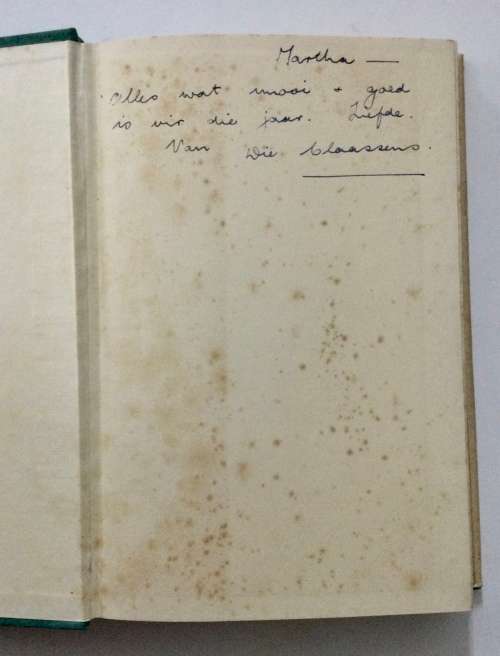 Martha —
Alles wat mooi + goed
is vir die jaar. Liefde.
Van Die Claassens.